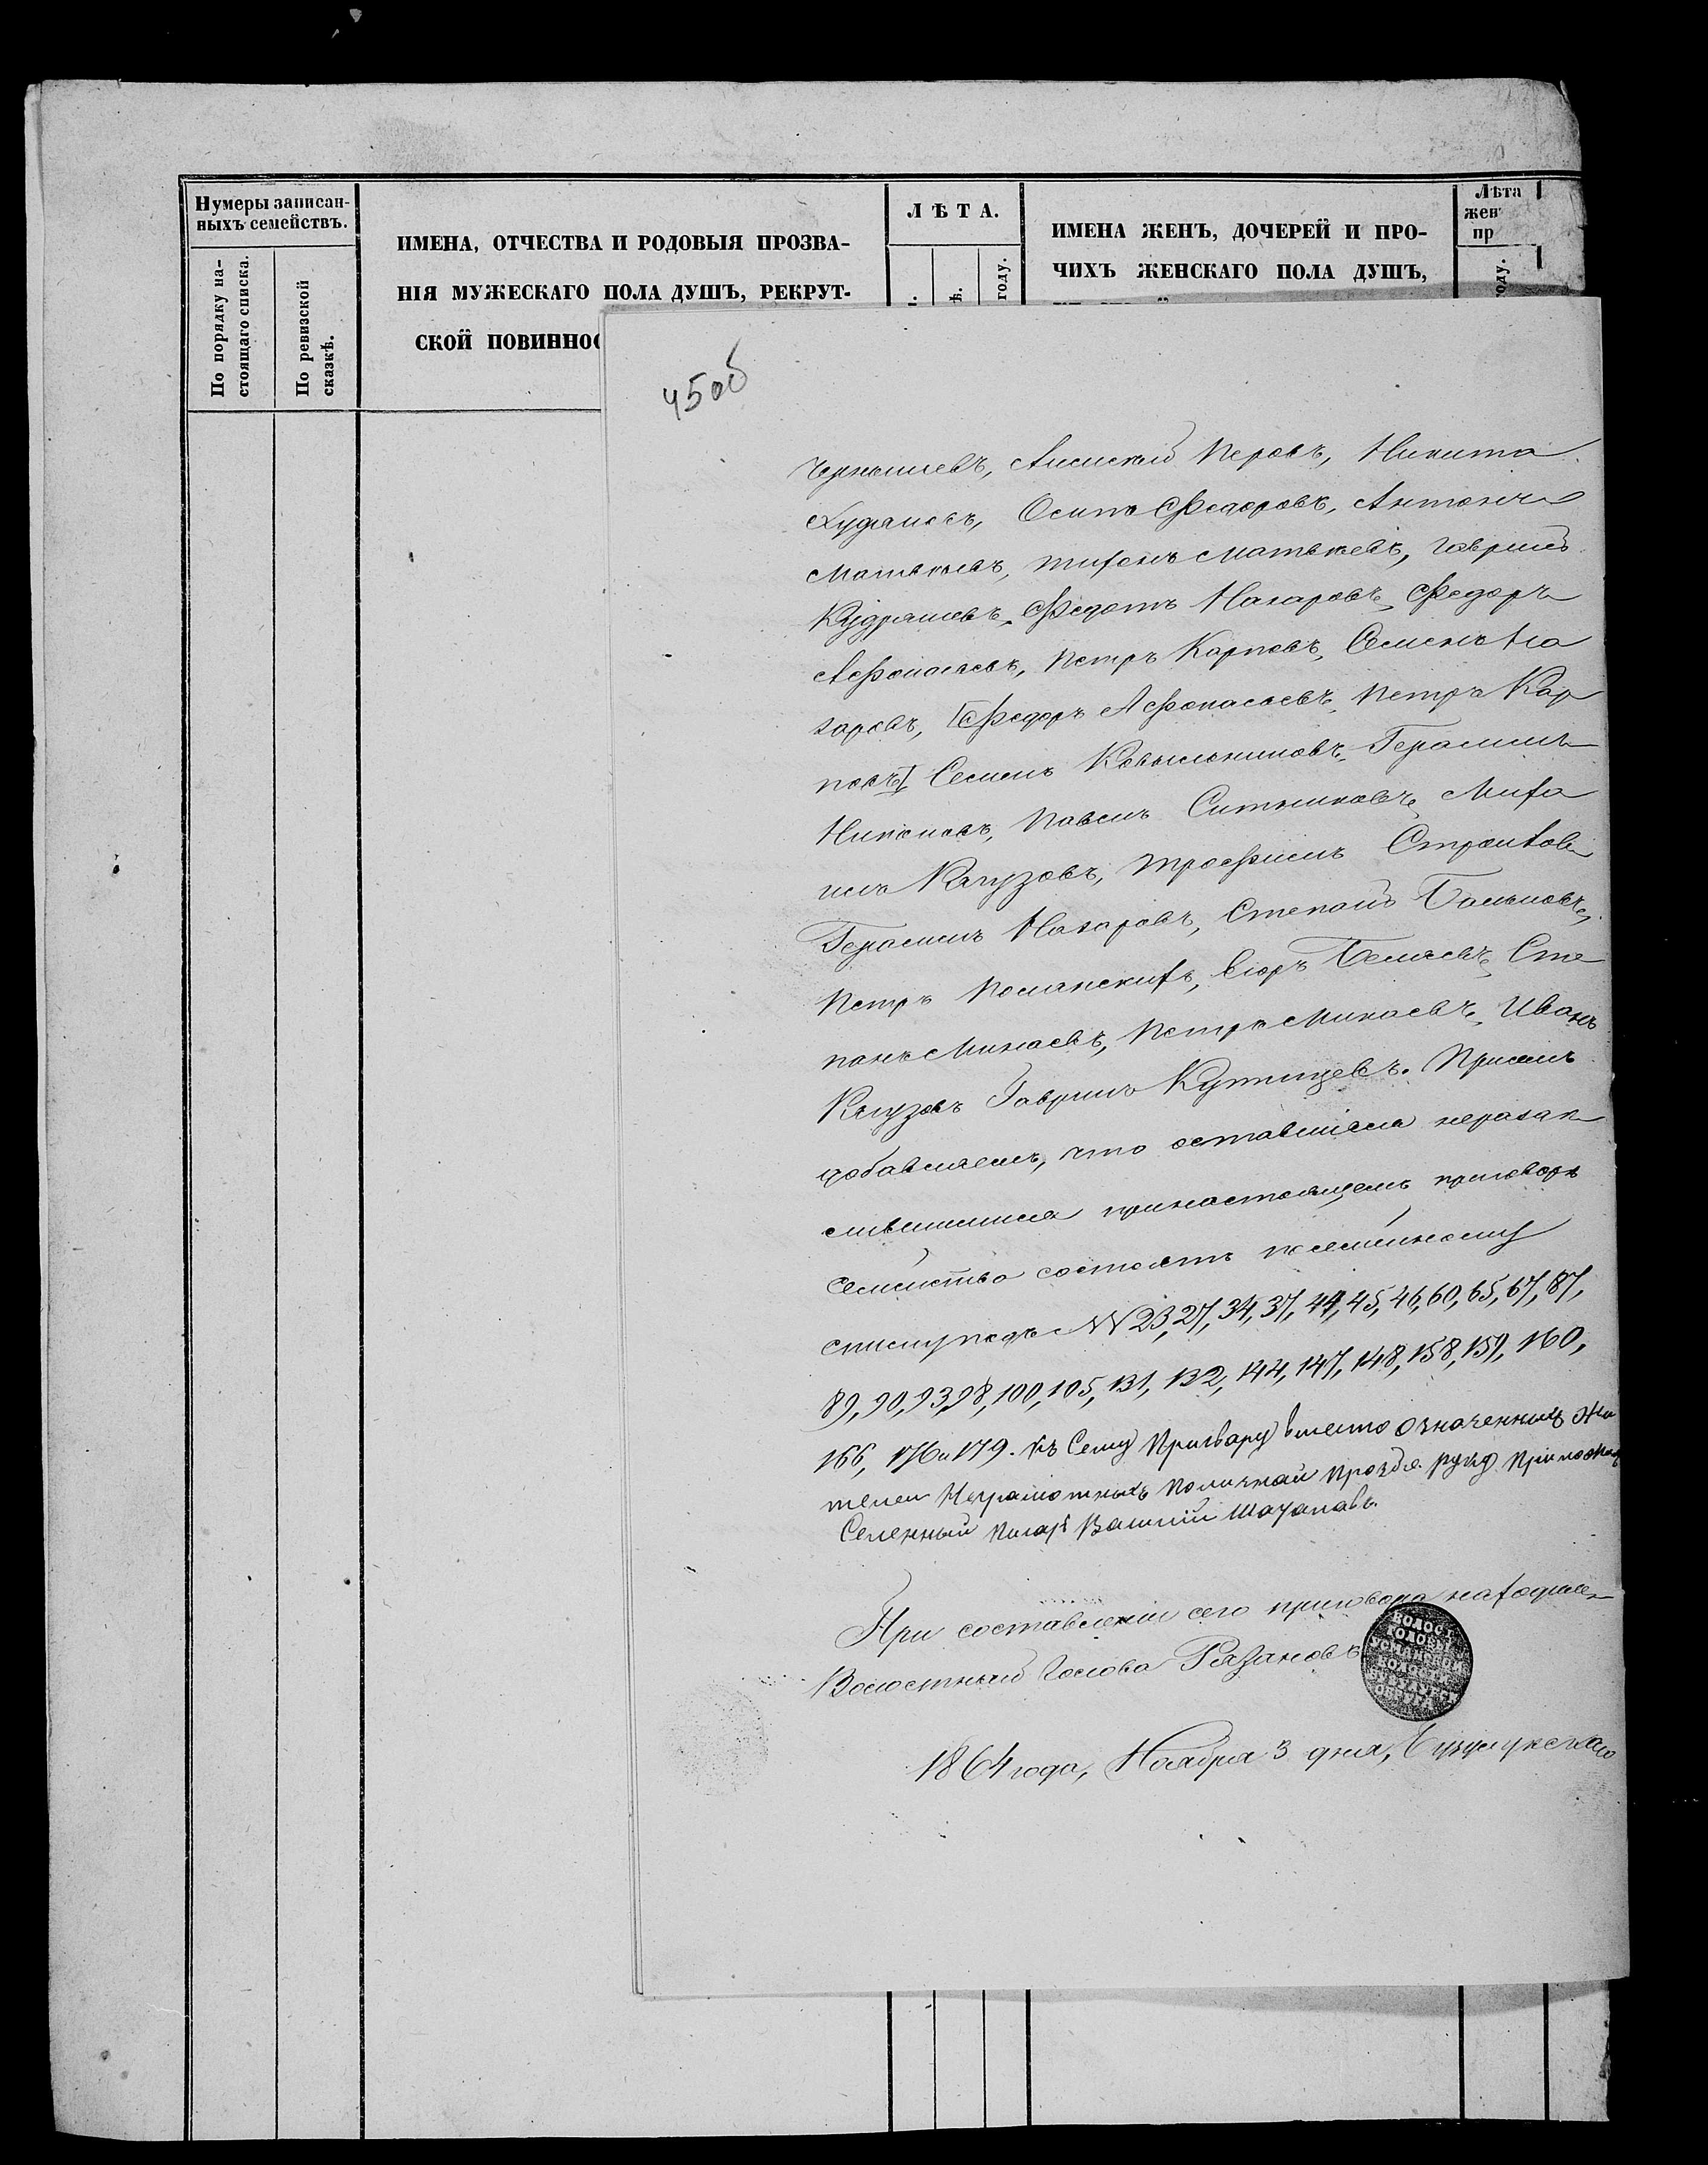 Нумеры записан-
ныхъ семействъ.
По порядку на-
стоящаго списка.
По ревизской
сказкѣ.
ИМЕНА, ОТЧЕСТВА И РОДОВЫЯ ПРОЗВА-
НІЯ МУЖЕСКАГО ПОЛА ДУШЪ, РЕКРУТ-
СКОЙ ПОВИННОС
ЛѢТА.
году.
ИМЕНА ЖЕНЪ, ДОЧЕРЕЙ И ПРО-
ЧИХЪ ЖЕНСКАГО ПОЛА ДУШЪ,
Лѣта
жен
пр
году.
45об
Чернышевъ, Перовъ, Никита
Осипъ Федоровъ, Антонъ
Матвѣевъ, Тихонъ Матвѣевъ, Гаврило
Кудряшовъ, Федотъ Назаровъ, Федоръ
Афонасьевъ, Петръ Карповъ, Семенъ На
заровъ, [Федоръ Афонасьевъ, Петръ Кар
повъ] Семенъ Ковыльниновъ, Герасимъ
Никоновъ, Павелъ Ситниковъ, Миха
илъ Кагузовъ, Трофимъ
Герасимъ Назаровъ, Степанъ
Петръ Полянскихъ, Егоръ Беляевъ, Сте
панъ Минаевъ, Петръ Минаевъ, Иванъ
Кагузовъ Гаврилъ Купницевъ. Присемъ
добавляемъ, что оставшіеся неразчи
слившимися принастоящемъ приговорѣ
семейства состоятъ посемейному
списку подъ NN 23, 27, 34, 37, 44, 45, 46, 60, 65, 67, 87,
89, 90, 93, 98, 100, 105, 131, 132, 144, 147, 148, 158, 159, 160,
166, 176 и 179. Къ Сему Приговару вместо означенныхъ Жи
телей Неграмотныхъ поличнай прозбе руку Приложилъ
Селенный писарь Васи́лій Шаталавъ.
При составленіи сего приговора находился
Волостный Голова Рязановъ
ВОЛОСТ.
ГОЛОВЫ
1864 года, Ноября 3 дня, Бузулукскаго